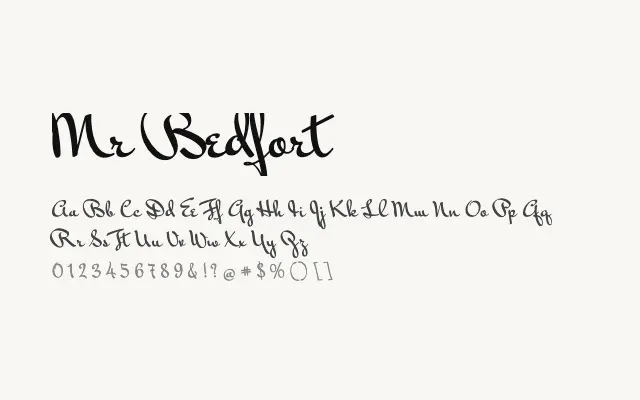 Mr Bedfort
Aa Bb Cc Dd Ee Ff Gg Hh Ii Jj Kk Ll Mm Nn Oo Pp Qq
Rr Ss Tt Uu Vv Ww Xx Yy Zz
0123456789&!?@#$%()[]